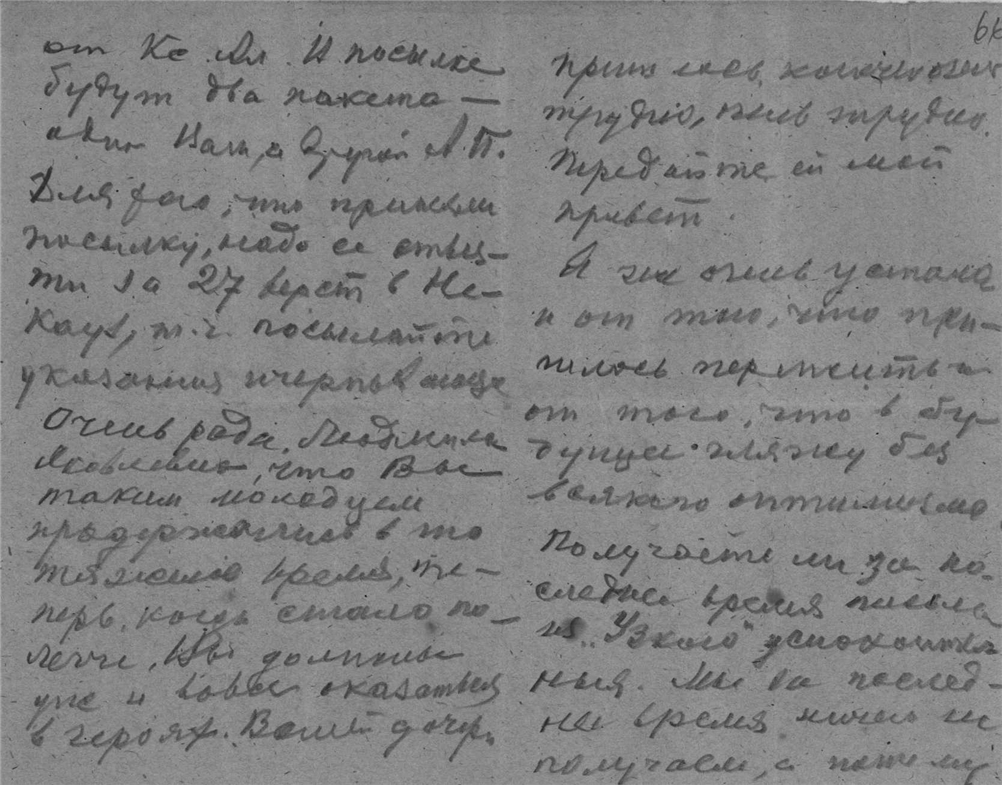 от Кс. Ал. В посылке
будут два пакета —
один Вам, а другой А. П.
Для того, что приняли
посылку, надо ее отвез-
ти за 27 верст в Не-
коуз, т. ч. посылайте
указания
Очень рада, Людмила
Яковлевна, что Вы
таким молодцем
продержались в то
тяжелое время, те-
перь, когда стало по-
легче, Вы должны
уже и вовсе оказаться
в героях. Вашей дочери
6
пришлось, конечно
трудно, очень трудно.
Передайте ей мой
привет.
Я же очень устала
и от того, что при-
шлось пережить и
от того, что в бу-
дущее гляжу без
всякого оптимизма
Получаете ли за по-
следнее время письма
из „Узкого“
Мы за послед-
нее время ничего не
получаем, а потому